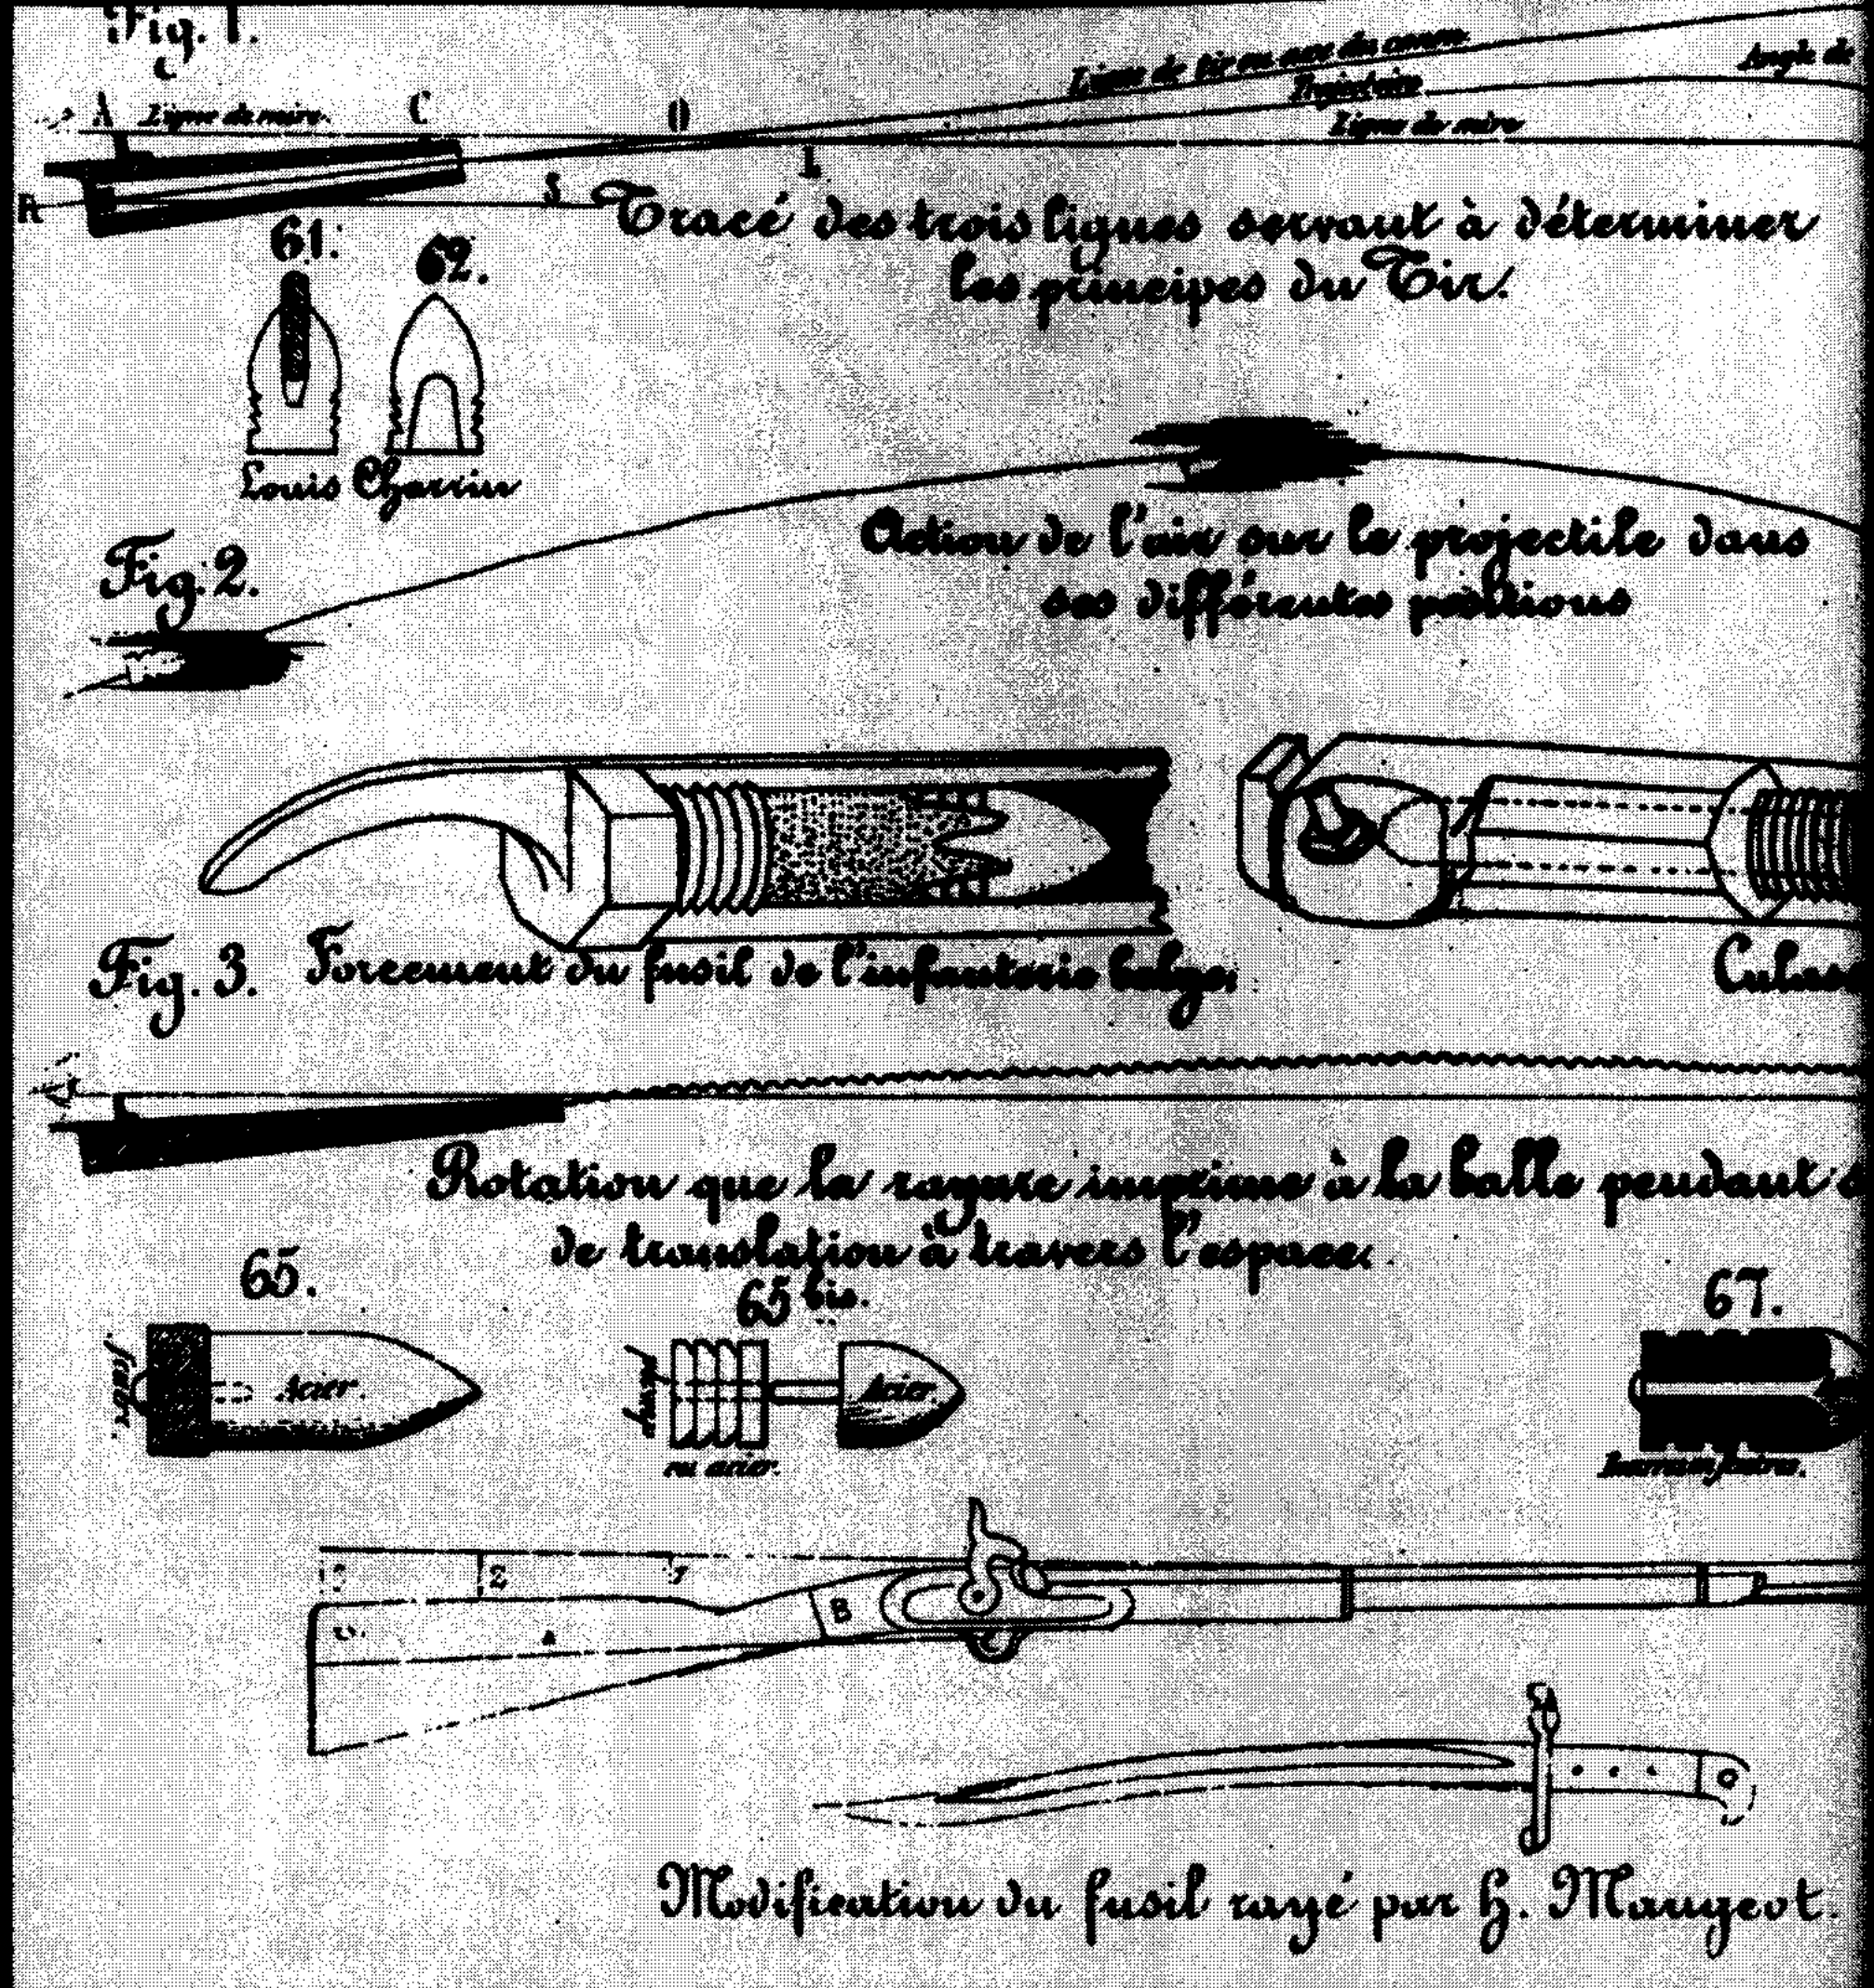 Fig. 1.
Ligne de tir ou axe du canon
Angle de
Trajectoire
A Ligne de mire. C O
Ligne de mire
L
R S
Tracé des trois lignes servant à déterminer
les principes du Tir.
61. 62.
Louis Charrin
Action de l'air sur le projectile dans
ses différentes positions
Fig. 2.
Fig. 3. Forcement du fusil de l'infanterie belge.
Culass
Rotation que la rayure imprime à la balle pendant s
de translation à travers l'espace.
65. 65 bis. 67.
feutre. Acier. plomb Acier.
ou acier.
2
B
Modification du fusil rayé par H. Mangeot.